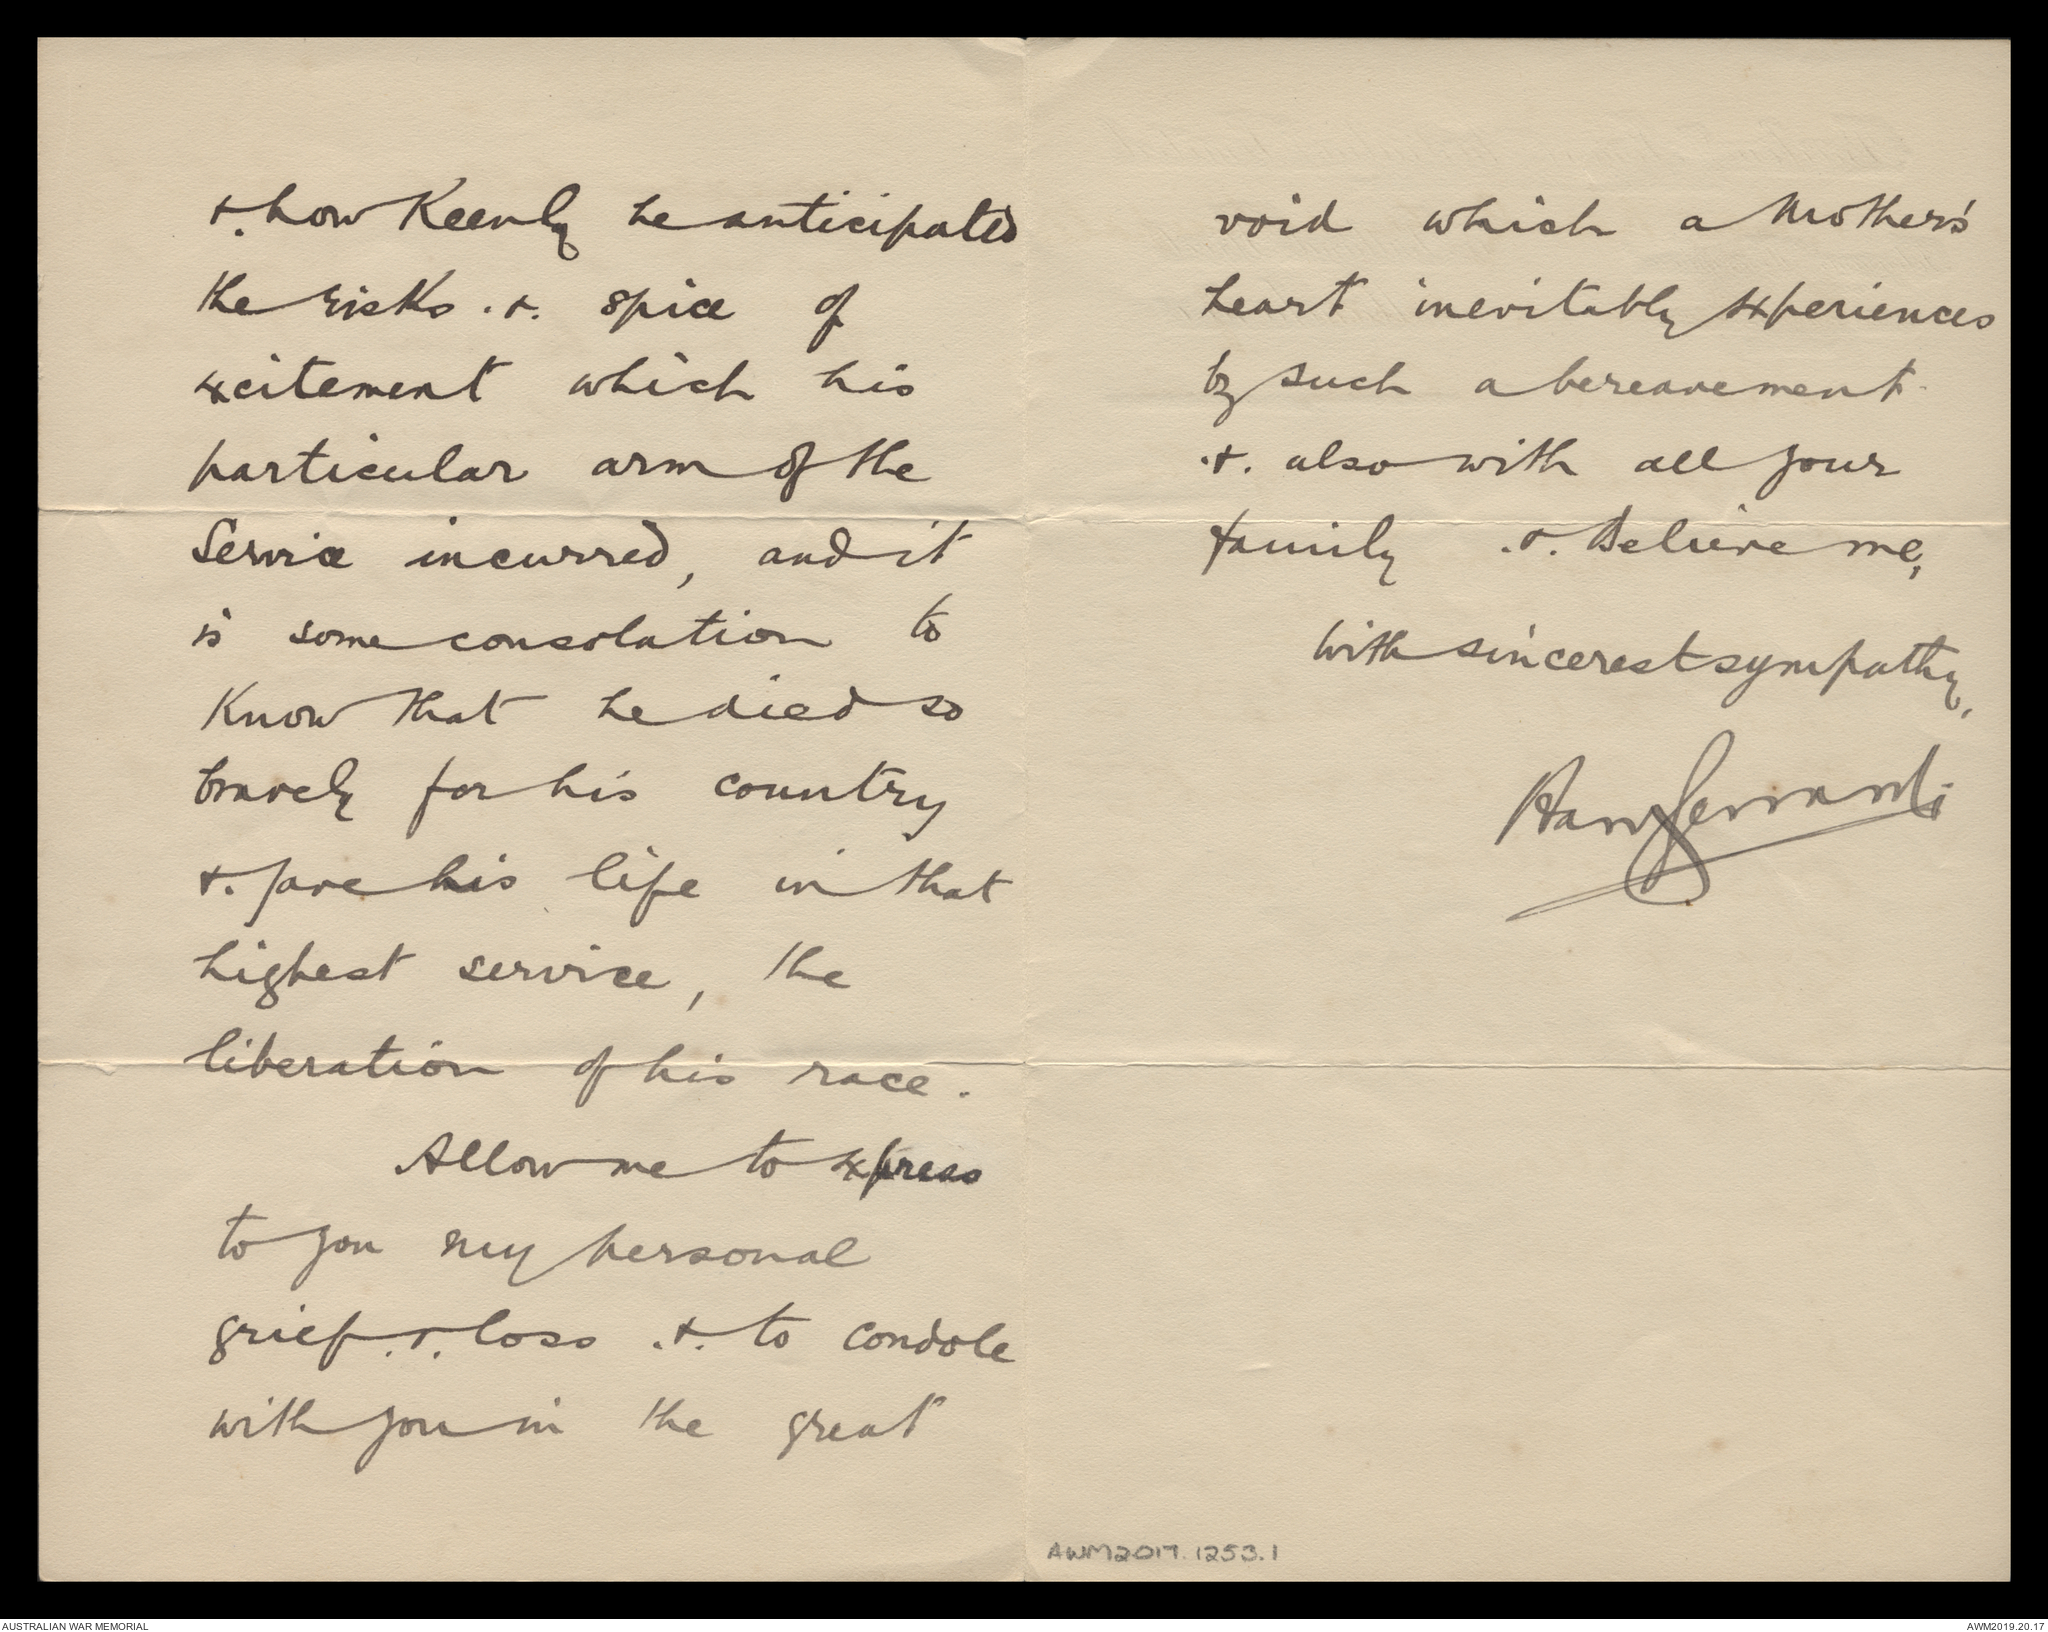 & how Keenly he anticipated
the risks & spice of
excitement which his
particular arm of the
Service incurred, and it
is some consolation to
Know that he died so
bravely for his country
& gave his life in that
highest service, the
liberation of his race.
Allow me to express
to you my personal
grief & loss & to condole
with you in the great
void which a Mother's
heart inevitably experiences
by such a bereavement
& also with all your
family & Believe me,
With sincerest sympathy,
AWM2017.1253.1
AUSTRALIAN WAR MEMORIAL
AWM2019.20.17